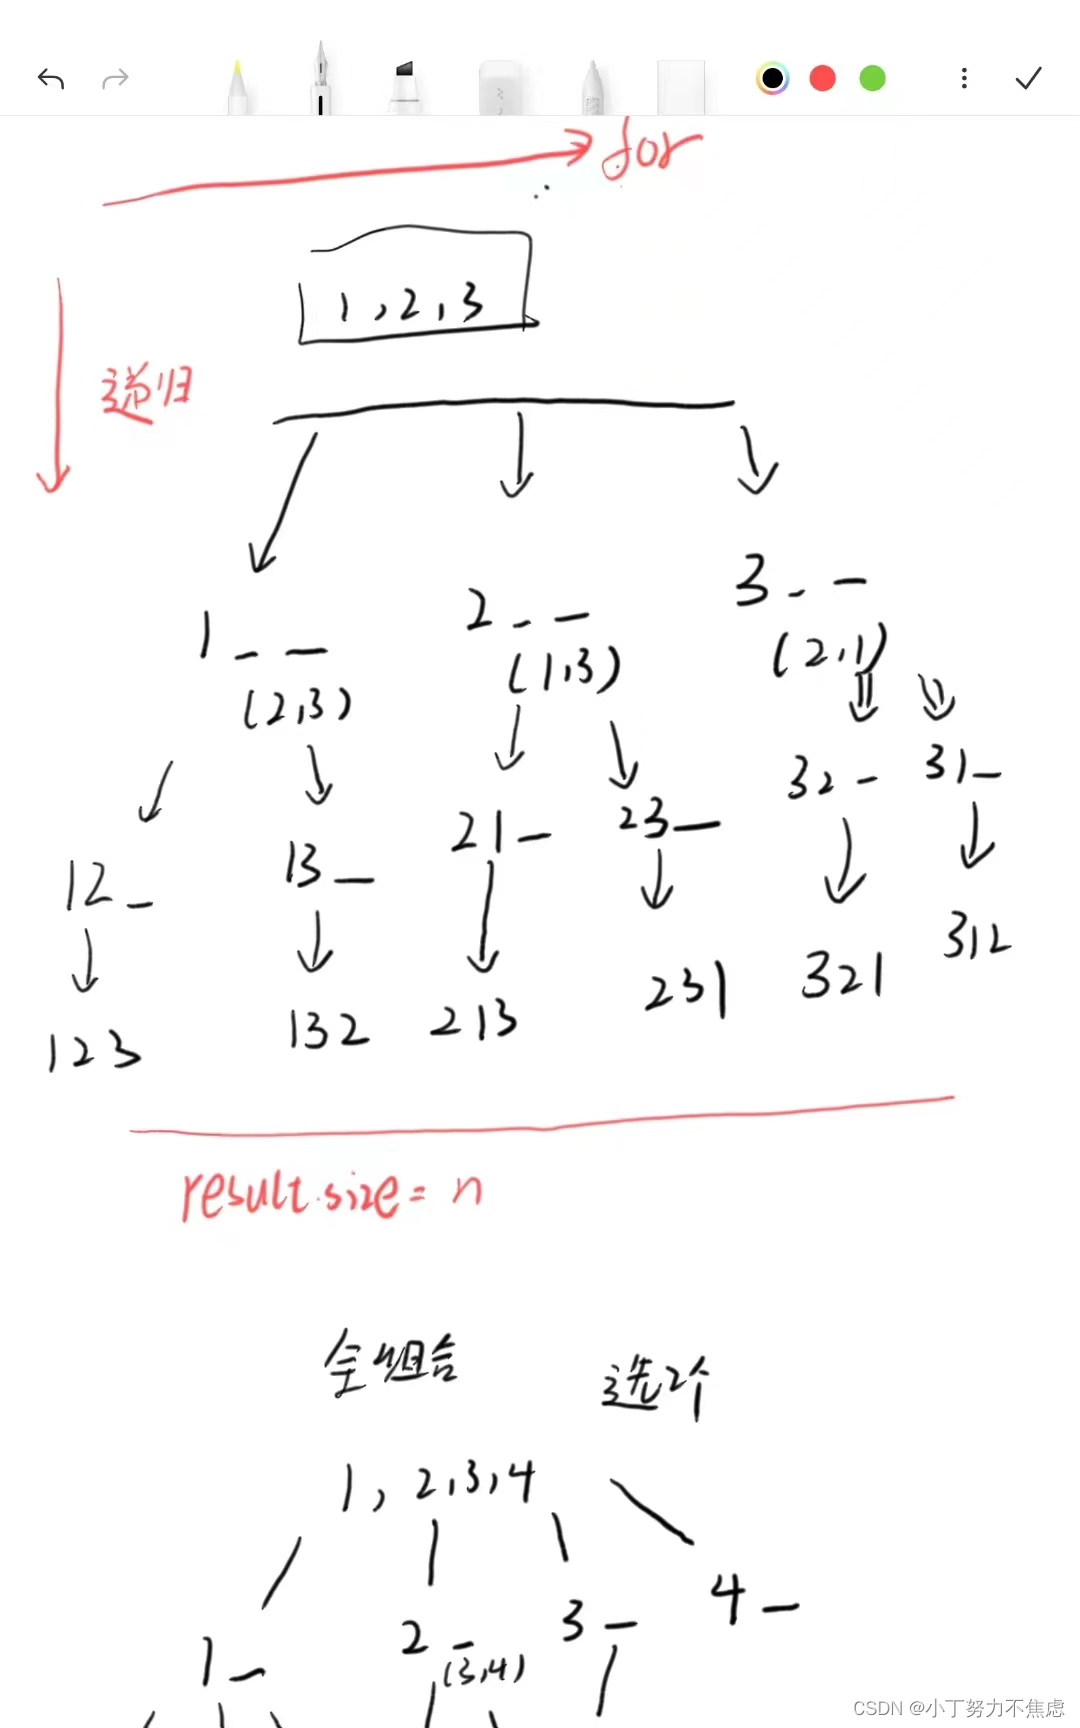 for
1,2,3
递归
1 _ _
2 _ _
3 _ _
(2,3)
(1,3)
(2,1)
12 _
13 _
21 _
23 _
32 _
31 _
123
132
213
231
321
312
result.size= n
全组合
选2个
1,2,3,4
1 _
2 _
3 _
4 _
(3,4)
CSDN @小丁努力不焦虑